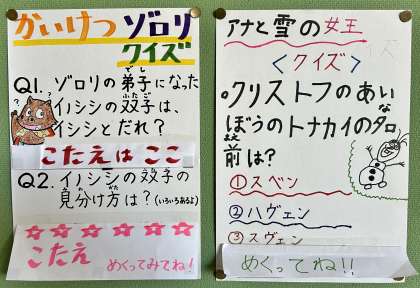 かいけつ ゾロリ
クイズ
Q1. ゾロリの弟子になった
イノシシの双子は、
イシシとだれ？
こたえは ここ
Q2. イノシシの双子の
見分け方は？(いろいろあるよ)
こたえ めくってみてね!
アナと雪の女王
＜クイズ＞
・クリストフのあい
ぼうのトナカイの名
前は？
①スベン
②ハヴェン
③スヴェン
めくってね!!